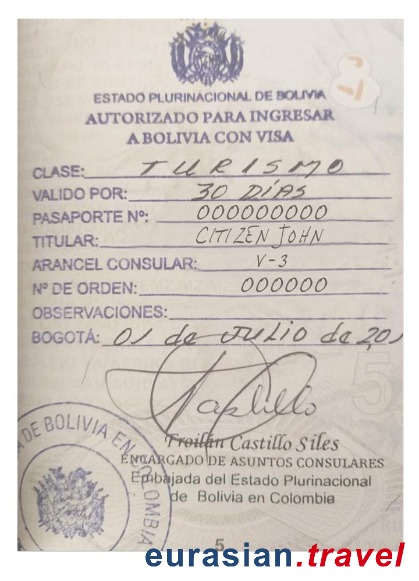 ESTADO PLURINACIONAL DE BOLIVIA
AUTORIZADO PARA INGRESAR
A BOLIVIA CON VISA
CLASE: TURISMO
VALIDO POR: 30 DÍAS
PASAPORTE Nº: 000000000
TITULAR: CITIZEN JOHN
ARANCEL CONSULAR: V-3
Nº DE ORDEN: 000000
OBSERVACIONES:
BOGOTÁ: 01 de JULIO de 201
Castillo
Froilán Castillo Siles
ENCARGADO DE ASUNTOS CONSULARES
Embajada del Estado Plurinacional
de Bolivia en Colombia
DE BOLIVIA EN COLOMBIA
5
5
eurasian.travel